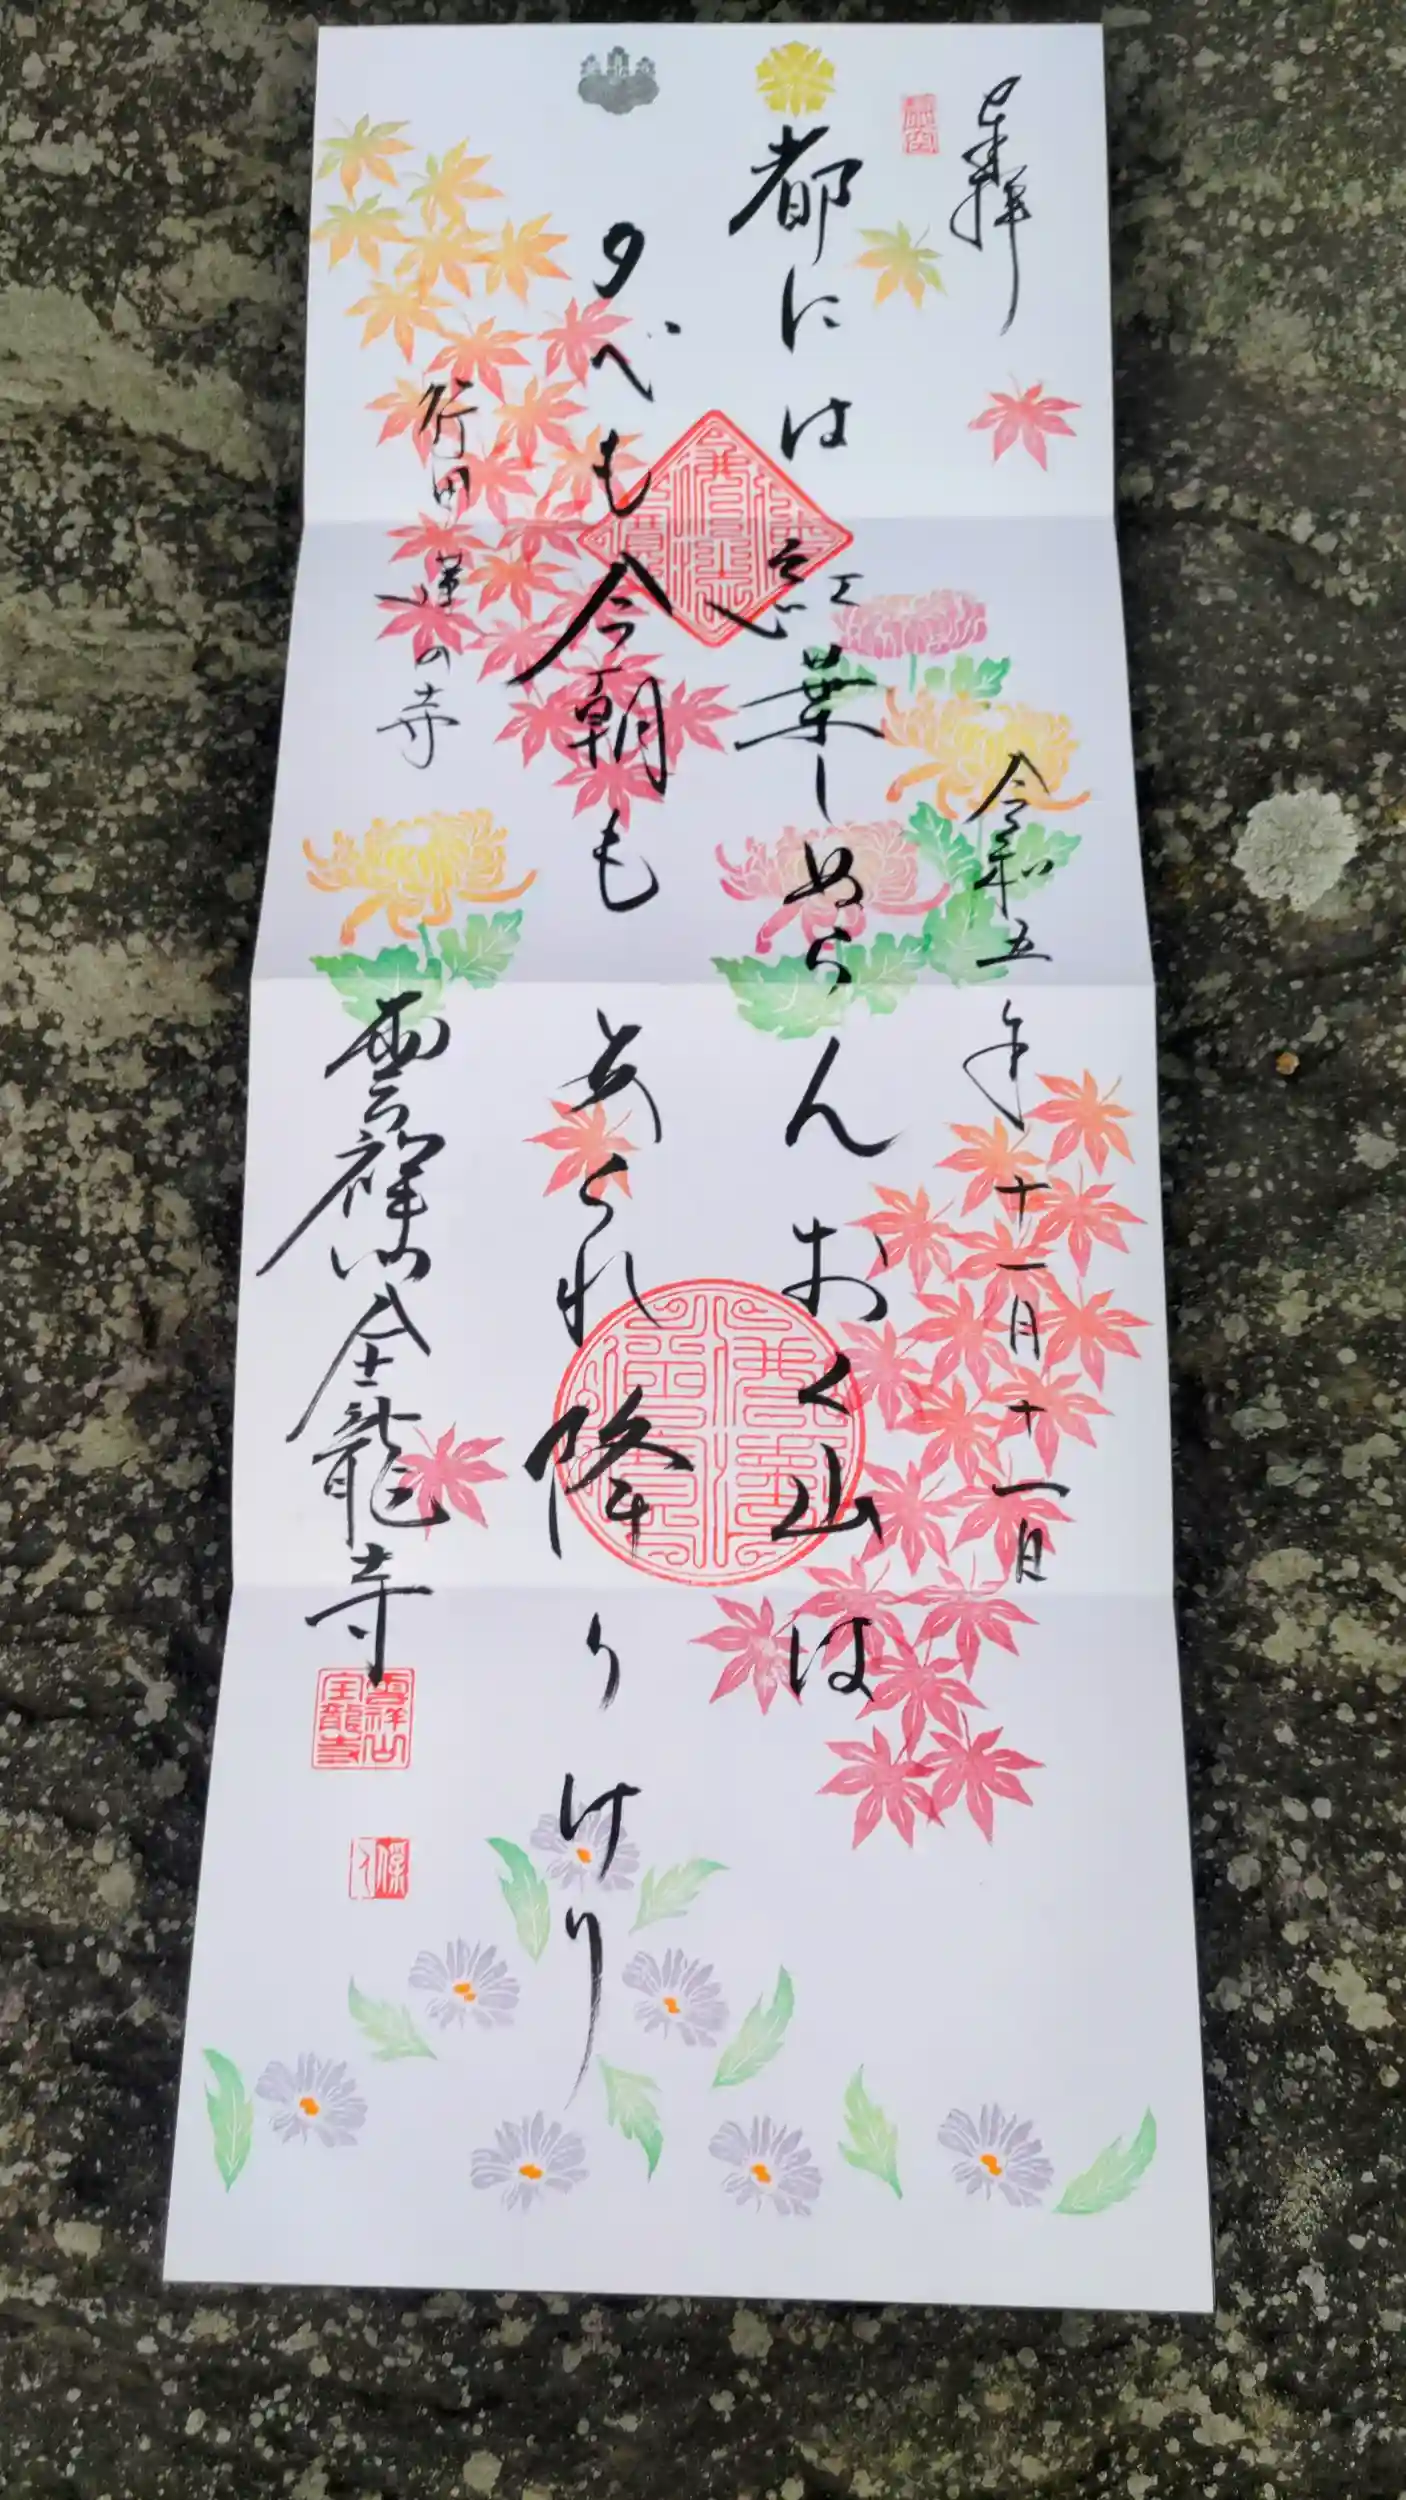 奉拝
令和五年十一月十一日
都には紅葉しぬらんおく山は
夕べも今朝もあられ降りけり
行田 蓮の寺
雲祥山全龍寺
雲祥山
全龍寺